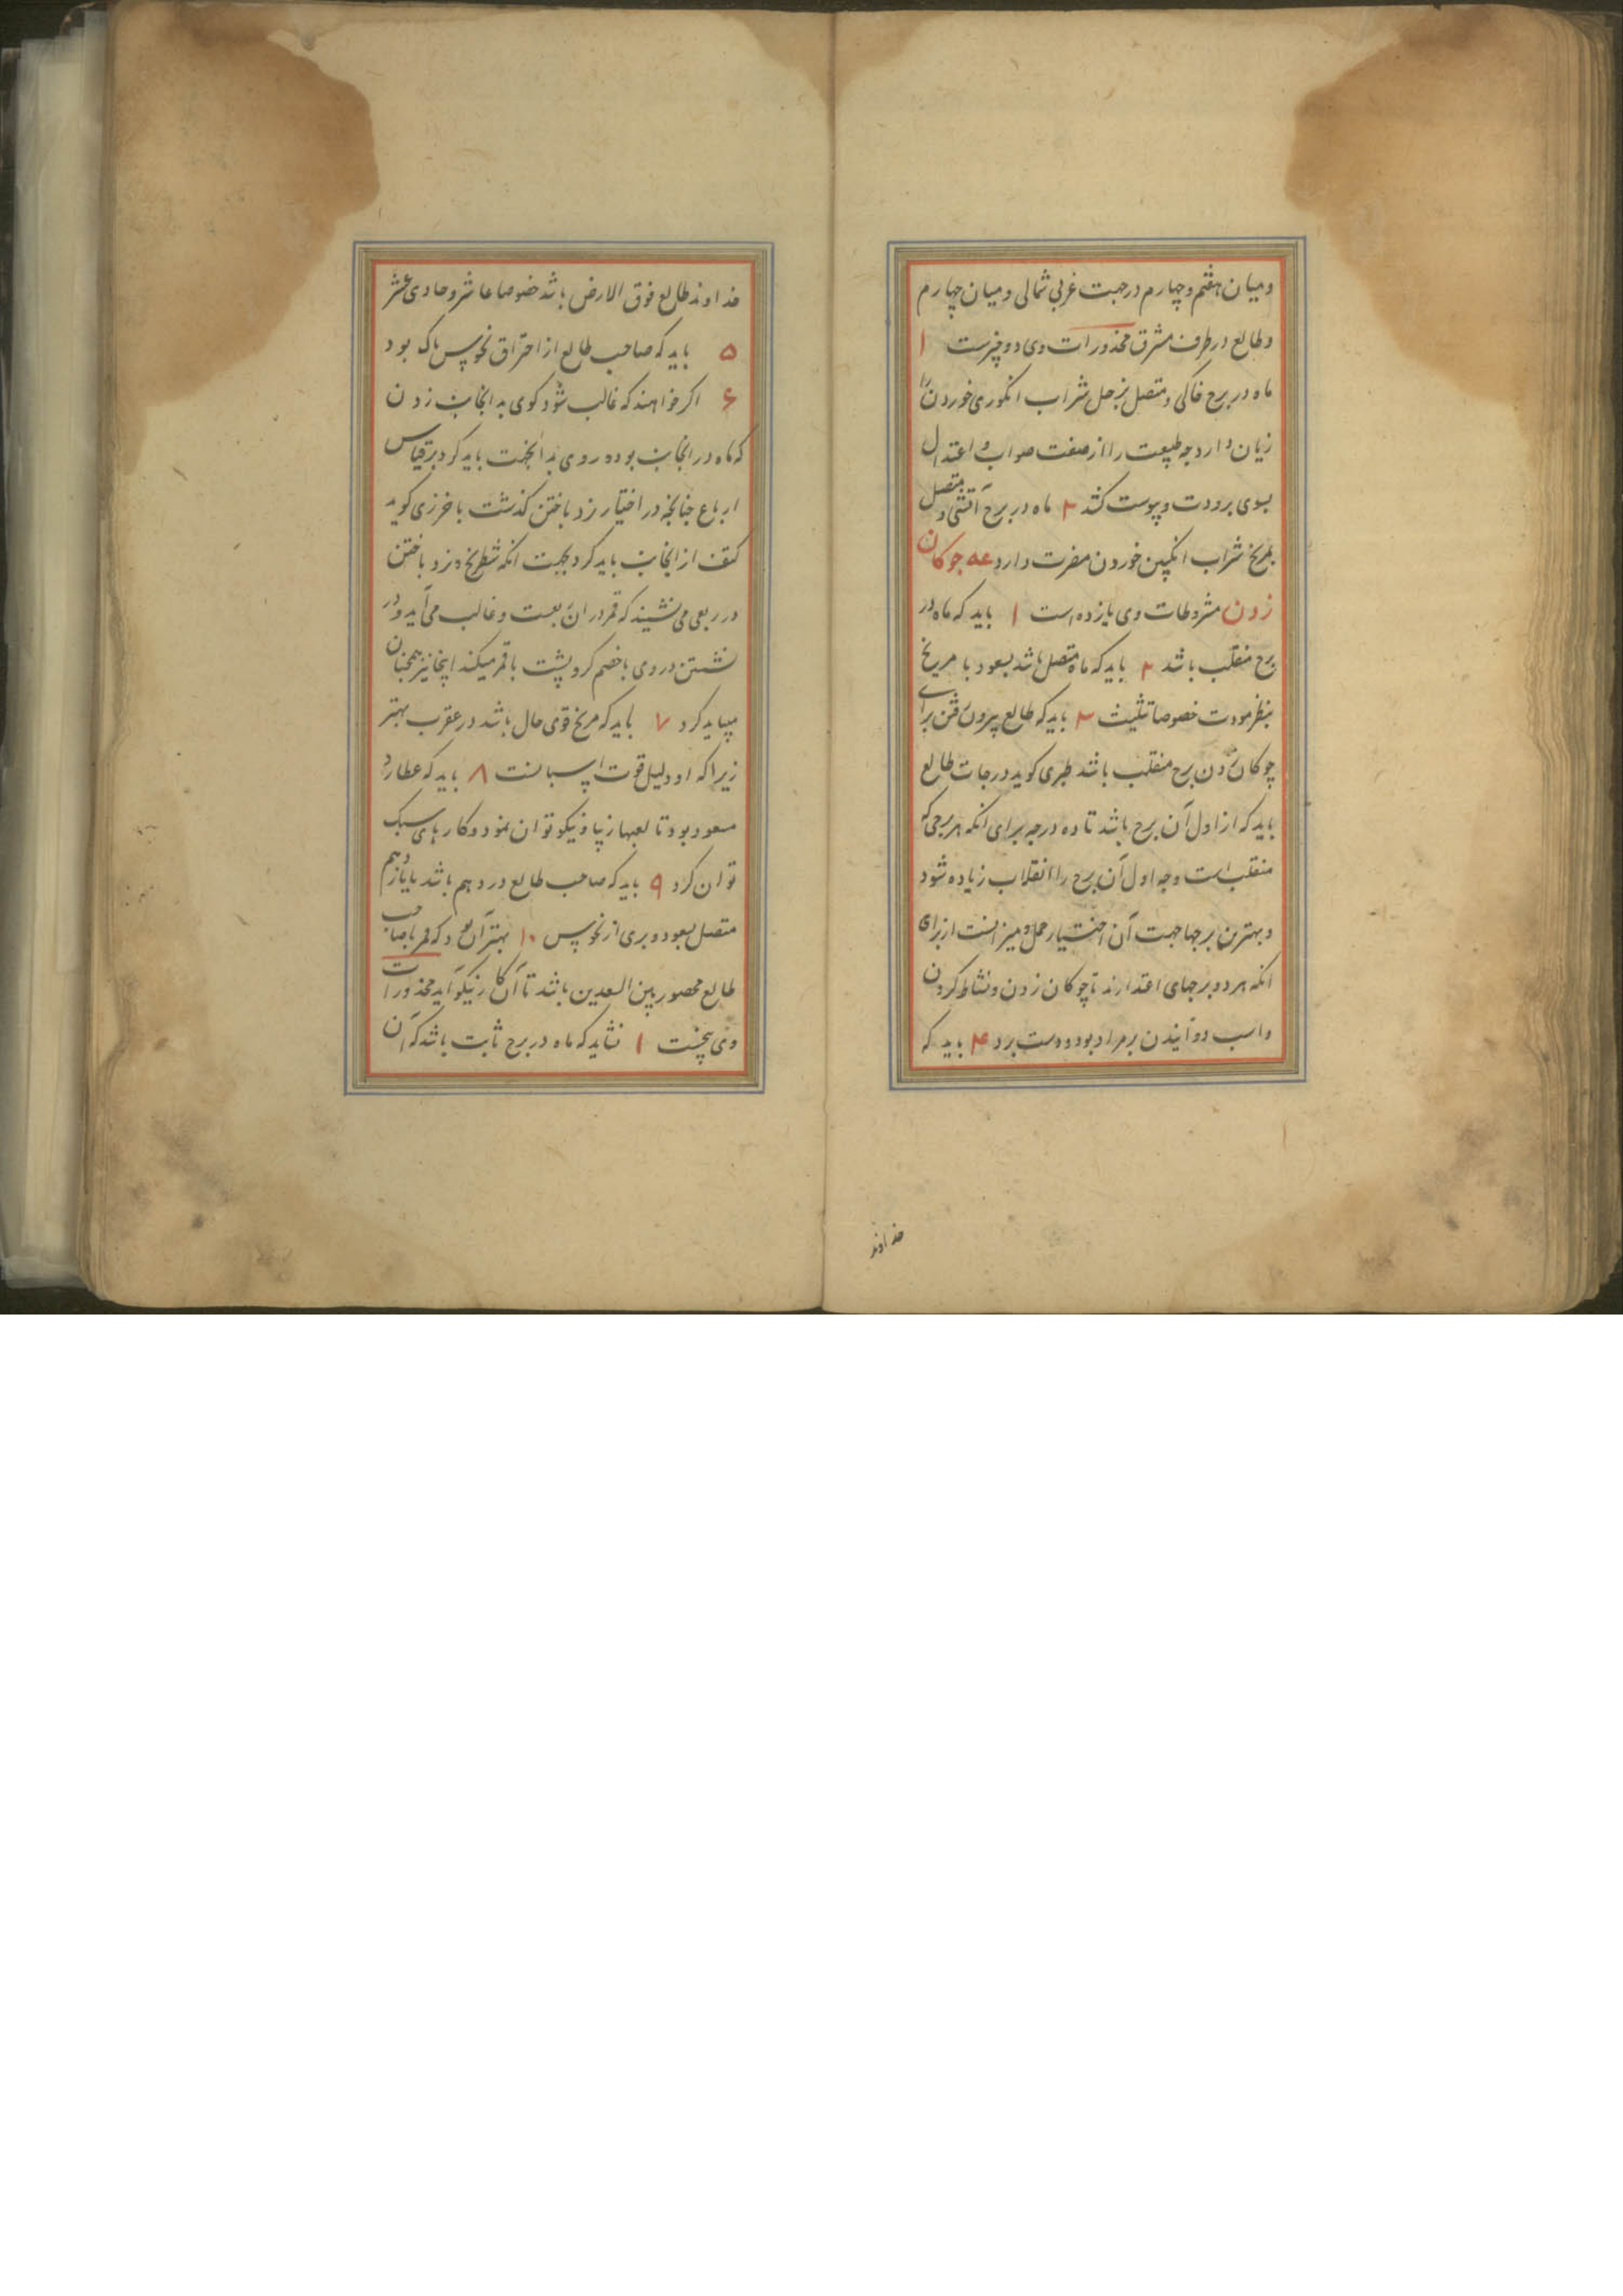 و میان هفتم و چهارم در جهت غربی شمالی و میان چهارم
و طالع در طرف مشرق محذورات وی دو چیزست ۱
ماه در برج خاکی و متصل بزحل شراب انکوری خوردن را
زیان دارد چه طبیعت را از صفت صواب و اعتدال
بسوی برودت و یبوست کشد ۲ ماه در برج آتشی و متصل
بمریخ شراب انکبین خوردن مضرت دارد عه جوکان
زدن مشروطات وی یازده است ۱ باید که ماه در
برج منقلب باشد ۲ باید که ماه متصل باشد بسعود با مریخ
بنظر مودت خصوصا تثلیث ۳ باید که طالع بیرون رفتن برای
چوکان زدن برج منقلب باشد طبری کوید درجات طالع
باید که از اول آن برج باشد تا ده درجه برای انکه هر برجی که
منقلب است وجه اول آن برج را انقلاب زیاده شود
و بهترین برجها جهت آن اختیار حمل و میزانست از برای
انکه هر دو برجهای اعتدالند تا چوکان زدن و نشاط کردن
و اسب دوانیدن بر مراد بود و دست برد ۴ باید که
خداوند
خداوند طالع فوق الارض باشد خصوصا عاشر و حادی عشر
۵ باید که صاحب طالع از احتراق نحوس پاک بود
۶ اکر خواهند که غالب شود کوی بدانجانب زدن
که ماه در انجانب بود و روی بدانجهت باید کرد برقیاس
ارباع جنانجه در اختیار نرد باختن کذشت باخرزی کوید
کتف از انجانب باید کرد بجهت انکه شطرنج و نرد باختن
در ربعی می نشیند که قمر در ان ربعست و غالب می آید و در
نشستن روی با خصم کرد و پشت با قمر میکند اینجا نیز همچنان
میباید کرد ۷ باید که مریخ قوی حال باشد در عقرب بهتر
زیرا که او دلیل قوت اسبانست ۸ باید که عطارد
مسعود بود تا لعبها زیبا و نیکو توان نمود و کارهای سبک
توان کرد ۹ باید که صاحب طالع در دهم باشد یا یازدهم
متصل بسعود و بری از نحوس ۱۰ بهتر آن بود که قمر با صاحب
طالع محصور بین السعدین باشد تا آن کار نیکو آید محذورات
وی پنجست ۱ نشاید که ماه در برج ثابت باشد که آن